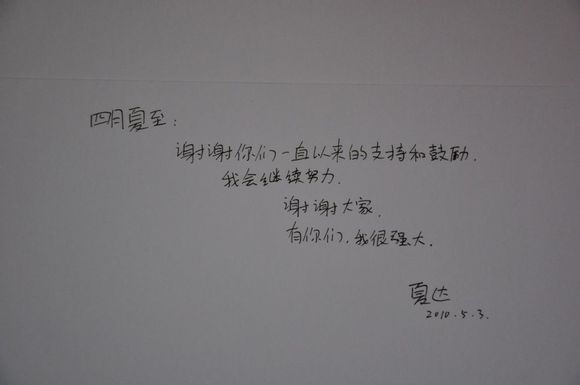 四月夏至：
谢谢你们一直以来的支持和鼓励.
我会继续努力.
谢谢大家.
有你们,我很强大.
夏达
2010.5.3.